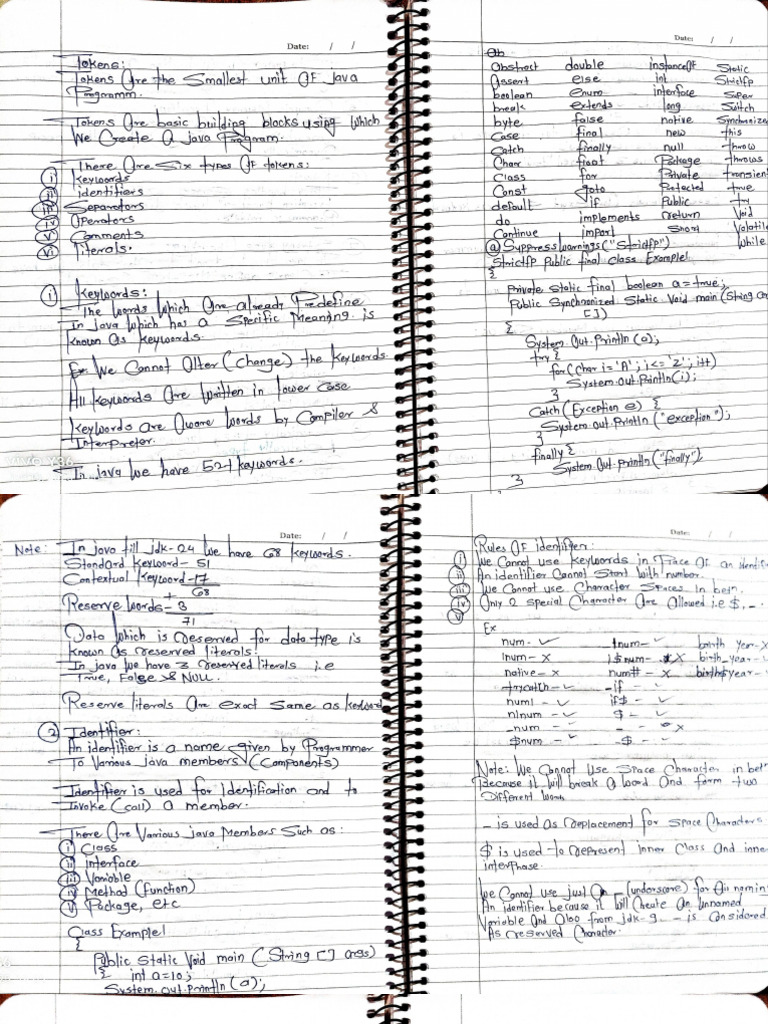 Date: / /
Tokens:
Tokens Are the Smallest unit OF java
Programm.
Tokens Are basic building blocks using which
We Create A java Program.
There Are Six types OF tokens:
i Keywords
ii identifiers
iii Separators
iv Operators
v Comments
vi Literals.
i Keywords:
The words which Are already Predefine
In java which has a Specific Meaning is
known As keywords.
Ex We Cannot Alter (change) the Keywords
All keywords Are written in lower case
Keywords are Aware words by Compiler &
Interpreter.
In java we have 52+ keywords.
Date: / /
Abstract double instanceOf Static
Assert else int Strictfp
boolean enum interface Super
break extends long Switch
byte false native Synchronized
Case final new this
Catch finally null throw
Char float Package throws
Class for Private transient
Const goto Protected true
default if Public try
do implements return Void
Continue import Short Volatile
While
@ SuppressWarnings("Strictfp")
Strictfp Public final class Example1
{
Private static final boolean a = true;
Public Synchronized Static Void main (String ar
[])
{
System.Out.Println (a);
try {
for(char i='A'; i<='z'; i++)
System.out.Println(i);
}
Catch (Exception e) {
System.out.Println ("exception");
}
finally {
System.Out.Println("finally");
}
Date: / /
Note: In java till jdk-24 we have 68 keywords.
Standard Keyword - 51
Contextual Keyword - 17
68
Reserve words - +3
71
Data Which is reserved for data type is
known As reserved literals!
In java we have 3 reserved literals i.e
True, False & Null.
Reserve literals Are exact same as keyword
2 Identifier:
An identifier is a name given by Programmer
To Various java members (Components)
Identifier is used for Identification and to
Invoke (call) A member.
There Are Various java Members Such as:
i Class
ii Interface
iii Variable
iv Method (function)
v Package, etc
Class Example1
{
Public Static Void main (String [] args)
{ int a=10;
System.out.println (a);
Date: / /
Rules OF identifier:
i We Cannot use keywords in Place Of an identifi
ii An identifier Cannot Start with number.
iii We Cannot use Character Spaces in betn.
iv Only 2 special Character Are Allowed i.e $, _.
v
Ex
num - ✓ 1num - ✓ birth year - x
1num - x i$num - x birth_year - ✓
native - x num# - x birth$year - ✓
trycatch - ✓ -if - ✓
num1 - ✓ if$ - ✓
n1num - ✓ $ - ✓
_num - ✓ - - x
$num - ✓ -$ - ✓
Note: We Cannot Use Space Character in betn
Because it will break A word And form two
Different words
_ is used as replacement for space characters.
$ is used to represent inner class And inne
interphase.
We Cannot use just A _ (underscore) for An namin
An identifier because it will Create An unnamed
Variable And Also from jdk-9. _ is Considered
As reserved Character.